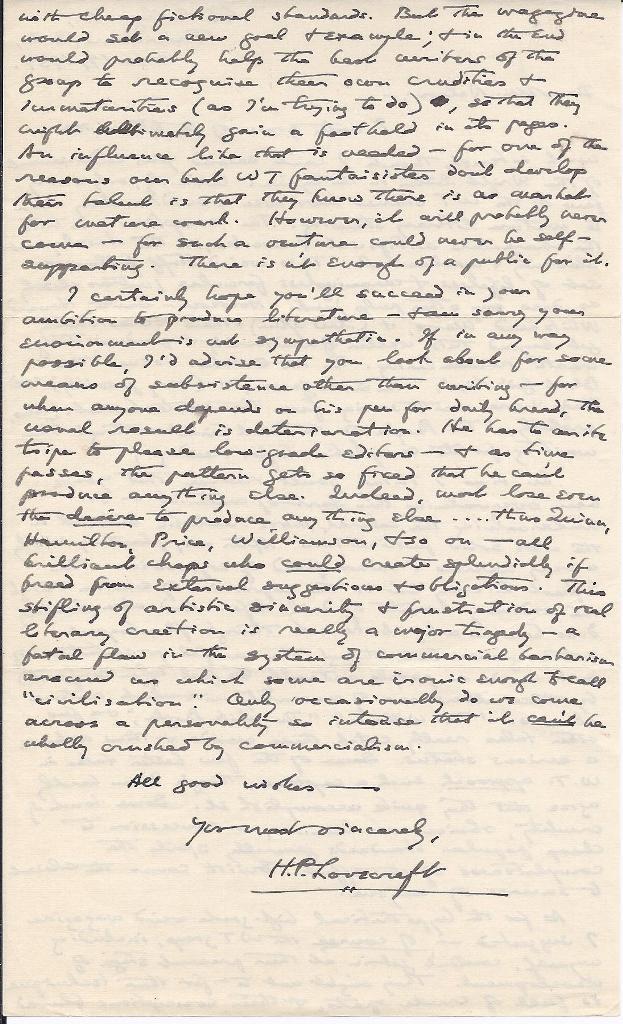 with cheap fictional standards. But the magazine
would set a new goal & example; & in the end
would probably help the best writers of the
group to recognise their own crudities &
immaturities (as I'm trying to do), so that they
might ultimately gain a foothold in its pages.
An influence like that is needed — for one of the
reasons our best WT fantaisistes don't develop
their talent is that they know there is no market
for mature work. However, it will probably never
come — for such a venture could never be self-
supporting. There isn't enough of a public for it.
I certainly hope you'll succeed in your
ambition to produce literature — & am sorry your
environment is not sympathetic. If in any way
possible, I'd advise that you look about for some
means of subsistence other than writing — for
when anyone depends on his pen for daily bread, the
usual result is deterioration. He has to write
tripe to please low-grade editors — & as time
passes, the pattern gets so fixed that he can't
produce anything else. Indeed, most lose even
the desire to produce anything else .... thus Quinn,
Hamilton, Price, Williamson, & so on — all
brilliant chaps who could create splendidly if
freed from external suggestions & obligations. This
stifling of artistic sincerity & frustration of real
literary creation is really a major tragedy — a
fatal flaw in the system of commercial barbarism
around us which some are ironic enough to call
"civilisation". Only occasionally do we come
across a personality so intense that it can't be
wholly crushed by commercialism.
All good wishes —
Yr most sincerely,
H.P. Lovecraft